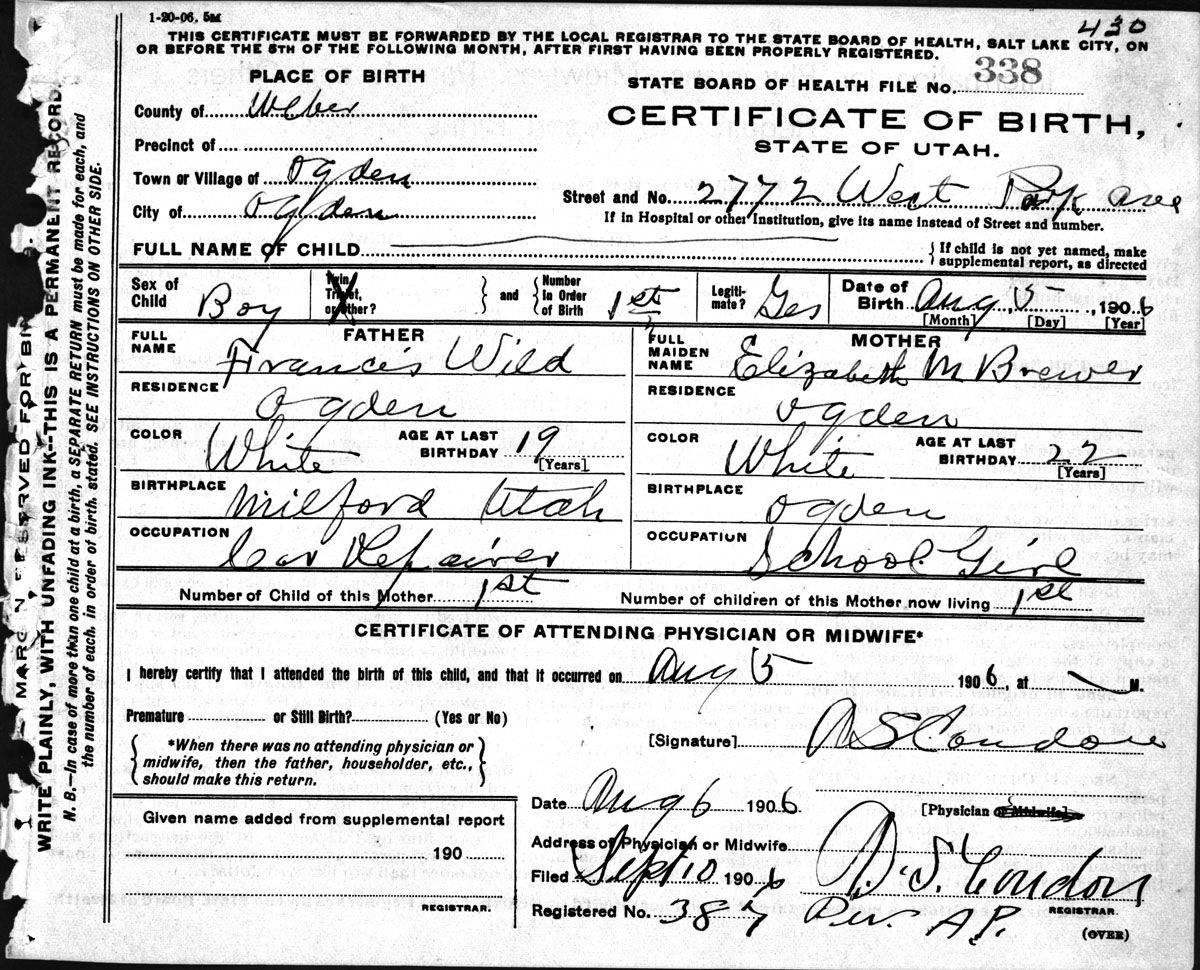 1-20-06. 5M
430
THIS CERTIFICATE MUST BE FORWARDED BY THE LOCAL REGISTRAR TO THE STATE BOARD OF HEALTH, SALT LAKE CITY, ON
OR BEFORE THE 5TH OF THE FOLLOWING MONTH, AFTER FIRST HAVING BEEN PROPERLY REGISTERED.
PLACE OF BIRTH
STATE BOARD OF HEALTH FILE No. 338
County of Weber
CERTIFICATE OF BIRTH,
Precinct of
STATE OF UTAH.
Town or Village of Ogden
Street and No. 2772 West Park Ave
City of Ogden
If in Hospital or other Institution, give its name instead of Street and number.
FULL NAME OF CHILD
{If child is not yet named, make
supplemental report, as directed
Sex of Child Boy
Twin Triplet, or other?
} and {
Number in Order of Birth 1st
Legiti-mate? Yes
Date of Birth Aug, 5, 1906
[Month] [Day] [Year]
FATHER
FULL NAME Francis Wild
MOTHER
FULL MAIDEN NAME Elizabeth M Brewer
RESIDENCE Ogden
RESIDENCE Ogden
COLOR White AGE AT LAST BIRTHDAY 19 [Years]
COLOR White AGE AT LAST BIRTHDAY 22 [Years]
BIRTHPLACE Milford Utah
BIRTHPLACE Ogden
OCCUPATION Car Repairer
OCCUPATION School Girl
Number of Child of this Mother 1st
Number of children of this Mother now living 1st
CERTIFICATE OF ATTENDING PHYSICIAN OR MIDWIFE*
I hereby certify that I attended the birth of this child, and that it occurred on Aug 5 1906, at M.
Premature or Still Birth? (Yes or No)
{*When there was no attending physician or
midwife, then the father, householder, etc.,
should make this return.}
[Signature] A S Condon
Date Aug 6 1906
[Physician or Midwife]
Given name added from supplemental report
190
REGISTRAR.
Address of Physician or Midwife
Filed Sept 10 1906 A. S. Condon
REGISTRAR.
Registered No. 387 Per. A.P.
(OVER)
WRITE PLAINLY, WITH UNFADING INK--THIS IS A PERMANENT RECORD.
N. B.--In case of more than one child at a birth, a SEPARATE RETURN must be made for each, and
the number of each, in order of birth, stated. SEE INSTRUCTIONS ON OTHER SIDE.